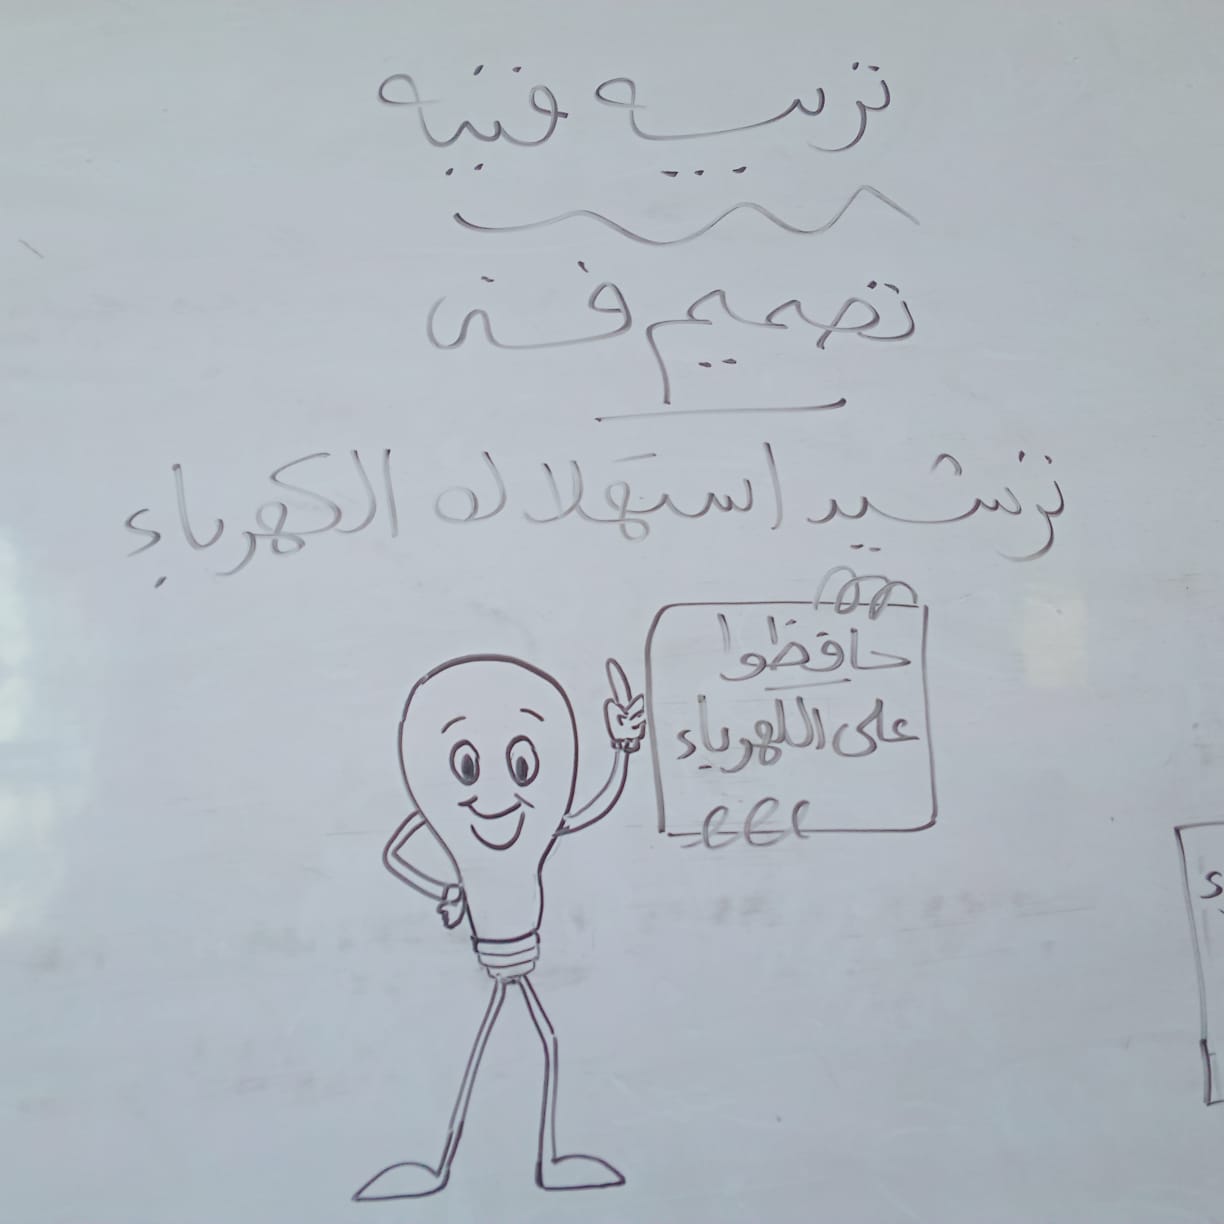 تربيه فنيه
تصميم فني
ترشيد استهلاك الكهرباء
حافظوا
على الكهرباء
ء